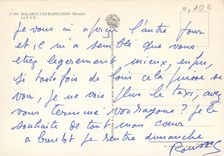 17 697. BALARUC-LES-BAINS (34540 - Hérault)
Le V.V.F.
je vous ai aperçu l'autre jour
et il m'a semblé que vous
étiez légèrement mieux, enfin,
si toutefois de loin cela puisse se
voir, je ne vais plus le taxi, avez
vous terminé vos rayons ? je le
souhaite de tout mon cœur
à bientôt je rentre dimanche